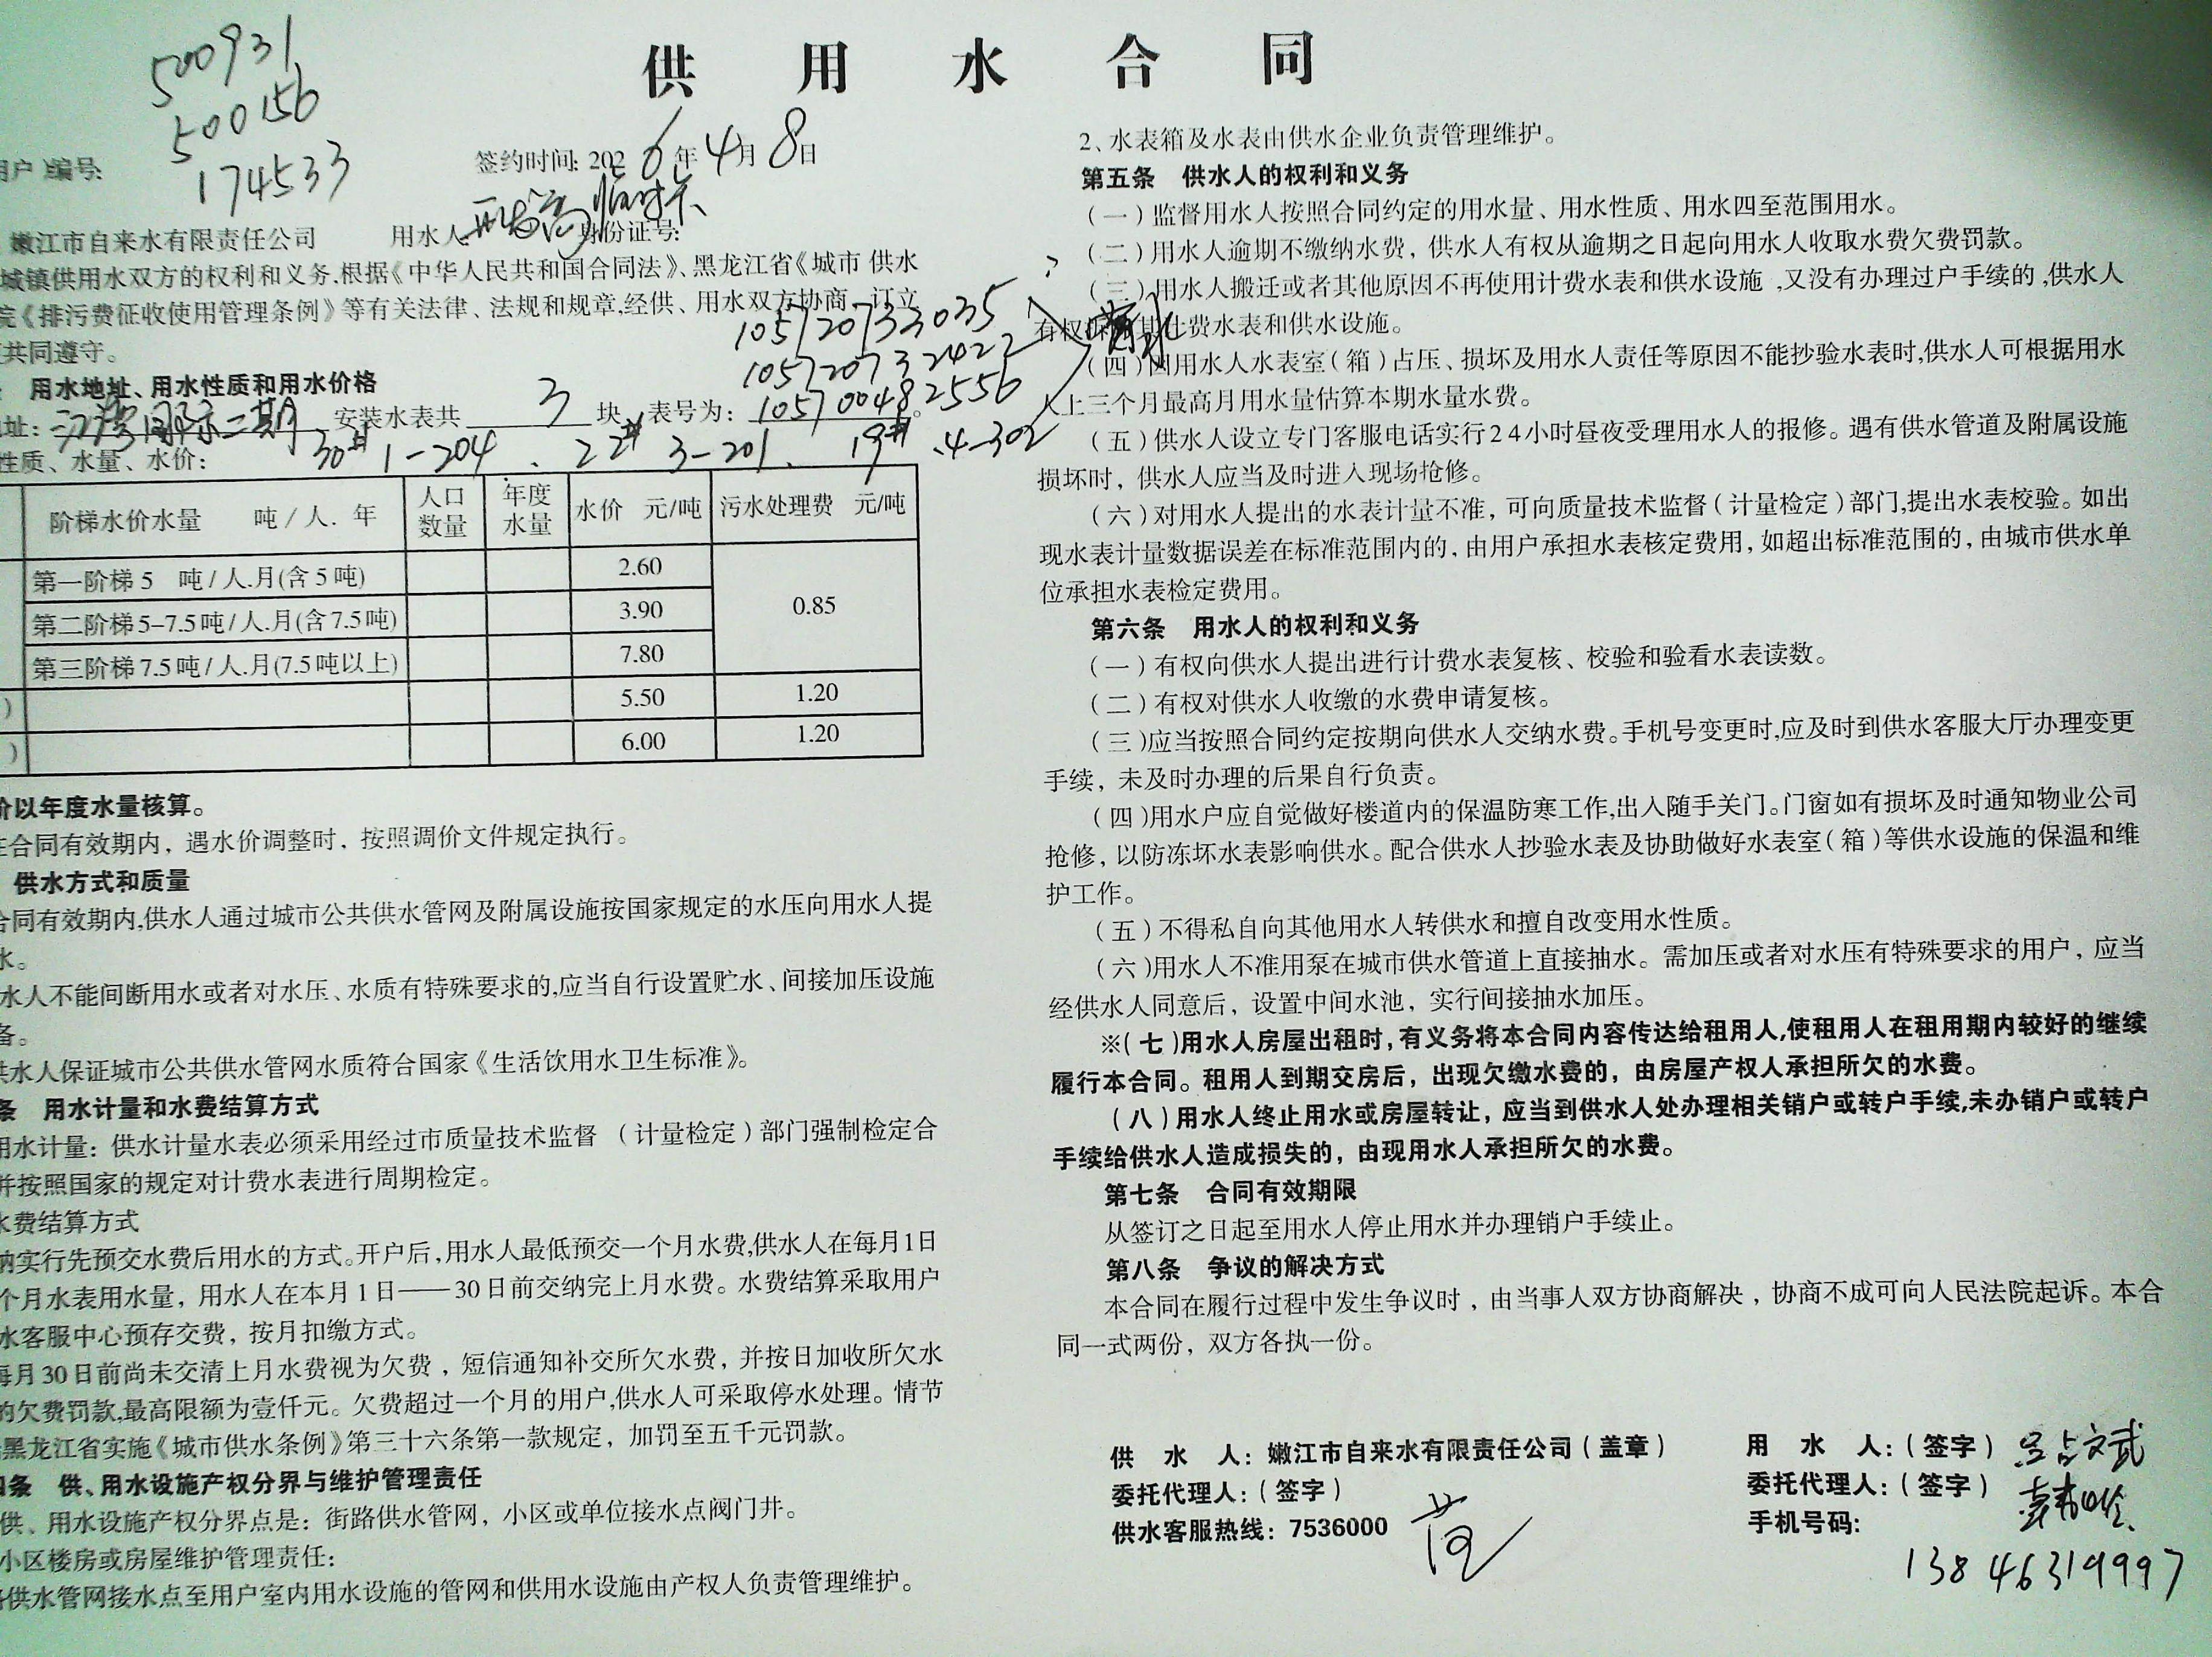 供用水合同
500931
500156
174533
用户)编号:
签约时间: 2026年4月8日
嫩江市自来水有限责任公司 用水人: 临时卡 身份证号:
城镇供用水双方的权利和义务,根据《中华人民共和国合同法》、黑龙江省《城市 供水
院《排污费征收使用管理条例》等有关法律、法规和规章,经供、用水双方协商,订立
共同遵守。
105720733035
105720732422
105700482556
用水地址、用水性质和用水价格
址: 国际二期 安装水表共 3 块,表号为:
30# 1-204 . 22# 3-201 . 19# .4-302
性质、水量、水价:
阶梯水价水量 吨/人.年 人口数量 年度水量 水价 元/吨 污水处理费 元/吨
第一阶梯5 吨/人.月(含5吨) 2.60 0.85
第二阶梯5-7.5吨/人.月(含7.5吨) 3.90
第三阶梯7.5吨/人.月(7.5吨以上) 7.80
) 5.50 1.20
) 6.00 1.20
价以年度水量核算。
在合同有效期内，遇水价调整时，按照调价文件规定执行。
供水方式和质量
合同有效期内,供水人通过城市公共供水管网及附属设施按国家规定的水压向用水人提
水。
水人不能间断用水或者对水压、水质有特殊要求的,应当自行设置贮水、间接加压设施
备。
供水人保证城市公共供水管网水质符合国家《生活饮用水卫生标准》。
条 用水计量和水费结算方式
用水计量：供水计量水表必须采用经过市质量技术监督 (计量检定)部门强制检定合
并按照国家的规定对计费水表进行周期检定。
水费结算方式
纳实行先预交水费后用水的方式。开户后,用水人最低预交一个月水费,供水人在每月1日
个月水表用水量，用水人在本月1日——30日前交纳完上月水费。水费结算采取用户
水客服中心预存交费，按月扣缴方式。
每月30日前尚未交清上月水费视为欠费，短信通知补交所欠水费，并按日加收所欠水
的欠费罚款,最高限额为壹仟元。欠费超过一个月的用户,供水人可采取停水处理。情节
黑龙江省实施《城市供水条例》第三十六条第一款规定，加罚至五千元罚款。
四条 供、用水设施产权分界与维护管理责任
供、用水设施产权分界点是：街路供水管网，小区或单位接水点阀门井。
小区楼房或房屋维护管理责任：
供水管网接水点至用户室内用水设施的管网和供用水设施由产权人负责管理维护。
2、水表箱及水表由供水企业负责管理维护。
第五条 供水人的权利和义务
(一)监督用水人按照合同约定的用水量、用水性质、用水四至范围用水。
(二)用水人逾期不缴纳水费，供水人有权从逾期之日起向用水人收取水费欠费罚款。
(三)用水人搬迁或者其他原因不再使用计费水表和供水设施,又没有办理过户手续的,供水人
有权拆除其计费水表和供水设施。
(四)因用水人水表室(箱)占压、损坏及用水人责任等原因不能抄验水表时,供水人可根据用水
人上三个月最高月用水量估算本期水量水费。
(五)供水人设立专门客服电话实行24小时昼夜受理用水人的报修。遇有供水管道及附属设施
损坏时，供水人应当及时进入现场抢修。
(六)对用水人提出的水表计量不准，可向质量技术监督(计量检定)部门,提出水表校验。如出
现水表计量数据误差在标准范围内的，由用户承担水表核定费用，如超出标准范围的，由城市供水单
位承担水表检定费用。
第六条 用水人的权利和义务
(一)有权向供水人提出进行计费水表复核、校验和验看水表读数。
(二)有权对供水人收缴的水费申请复核。
(三)应当按照合同约定按期向供水人交纳水费。手机号变更时,应及时到供水客服大厅办理变更
手续，未及时办理的后果自行负责。
(四)用水户应自觉做好楼道内的保温防寒工作,出入随手关门。门窗如有损坏及时通知物业公司
抢修，以防冻坏水表影响供水。配合供水人抄验水表及协助做好水表室(箱)等供水设施的保温和维
护工作。
(五)不得私自向其他用水人转供水和擅自改变用水性质。
(六)用水人不准用泵在城市供水管道上直接抽水。需加压或者对水压有特殊要求的用户，应当
经供水人同意后，设置中间水池，实行间接抽水加压。
※(七)用水人房屋出租时,有义务将本合同内容传达给租用人,使租用人在租用期内较好的继续
履行本合同。租用人到期交房后，出现欠缴水费的，由房屋产权人承担所欠的水费。
(八)用水人终止用水或房屋转让，应当到供水人处办理相关销户或转户手续,未办销户或转户
手续给供水人造成损失的，由现用水人承担所欠的水费。
第七条 合同有效期限
从签订之日起至用水人停止用水并办理销户手续止。
第八条 争议的解决方式
本合同在履行过程中发生争议时，由当事人双方协商解决，协商不成可向人民法院起诉。本合
同一式两份，双方各执一份。
供水人：嫩江市自来水有限责任公司(盖章)
委托代理人：(签字)
供水客服热线：7536000
用水人：(签字)
委托代理人：(签字)
手机号码:
13846319997